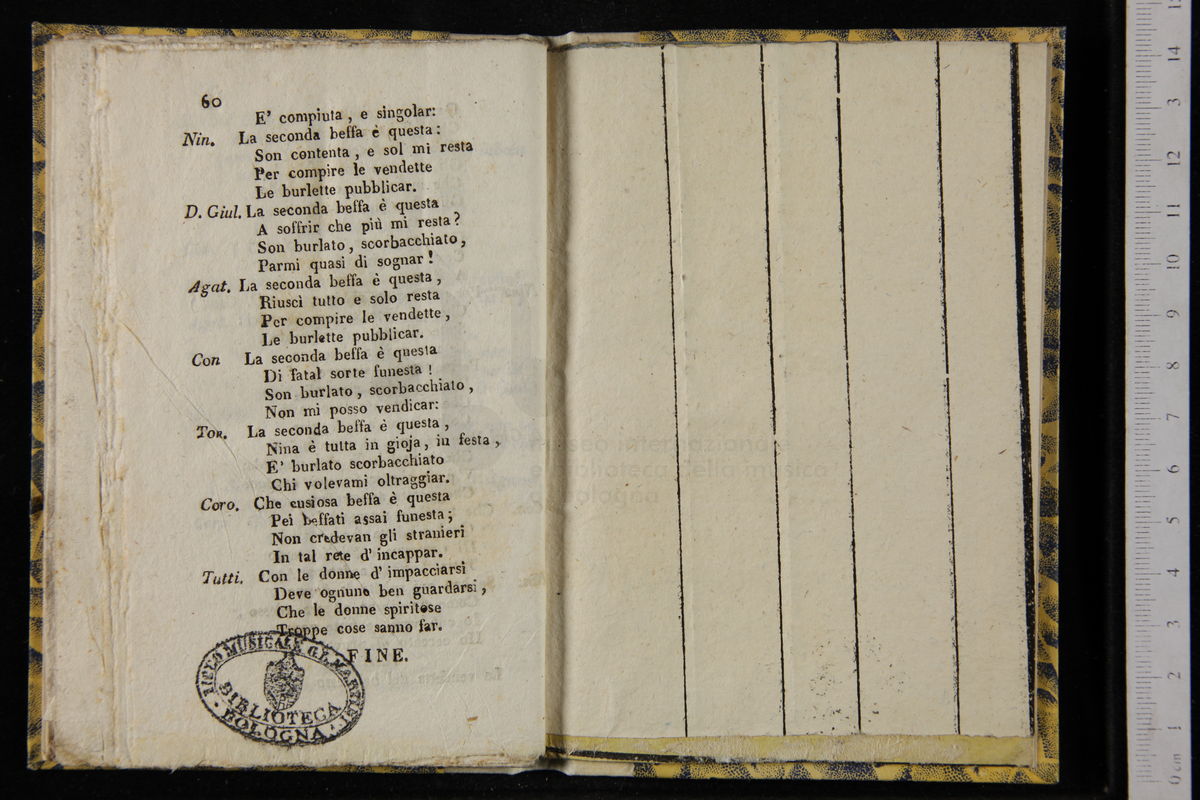 60
E' compiuta, e singolar:
Nin. La seconda beffa è questa:
Son contenta, e sol mi resta
Per compire le vendette
Le burlette pubblicar.
D. Giul. La seconda beffa è questa
A soffrir che più mi resta?
Son burlato, scorbacchiato,
Parmi quasi di sognar!
Agat. La seconda beffa è questa,
Riuscì tutto e solo resta
Per compire le vendette,
Le burlette pubblicar.
Con La seconda beffa è questa
Di fatal sorte funesta!
Son burlato, scorbacchiato,
Non mi posso vendicar:
Tor. La seconda beffa è questa,
Nina è tutta in gioja, in festa,
E' burlato scorbacchiato
Chi volevami oltraggiar.
Coro. Che cusiosa beffa è questa
Pei beffati assai funesta;
Non credevan gli stranieri
In tal rete d' incappar.
Tutti. Con le donne d' impacciarsi
Deve ognuno ben guardarsi,
Che le donne spiritose
Troppe cose sanno far.
FINE.
LICEO MUSICALE G. B. MARTINI
BIBLIOTECA
BOLOGNA
museo internazionale
e biblioteca della musica
di bologna
0 cm
1
2
3
4
5
6
7
8
9
10
11
12
3
14